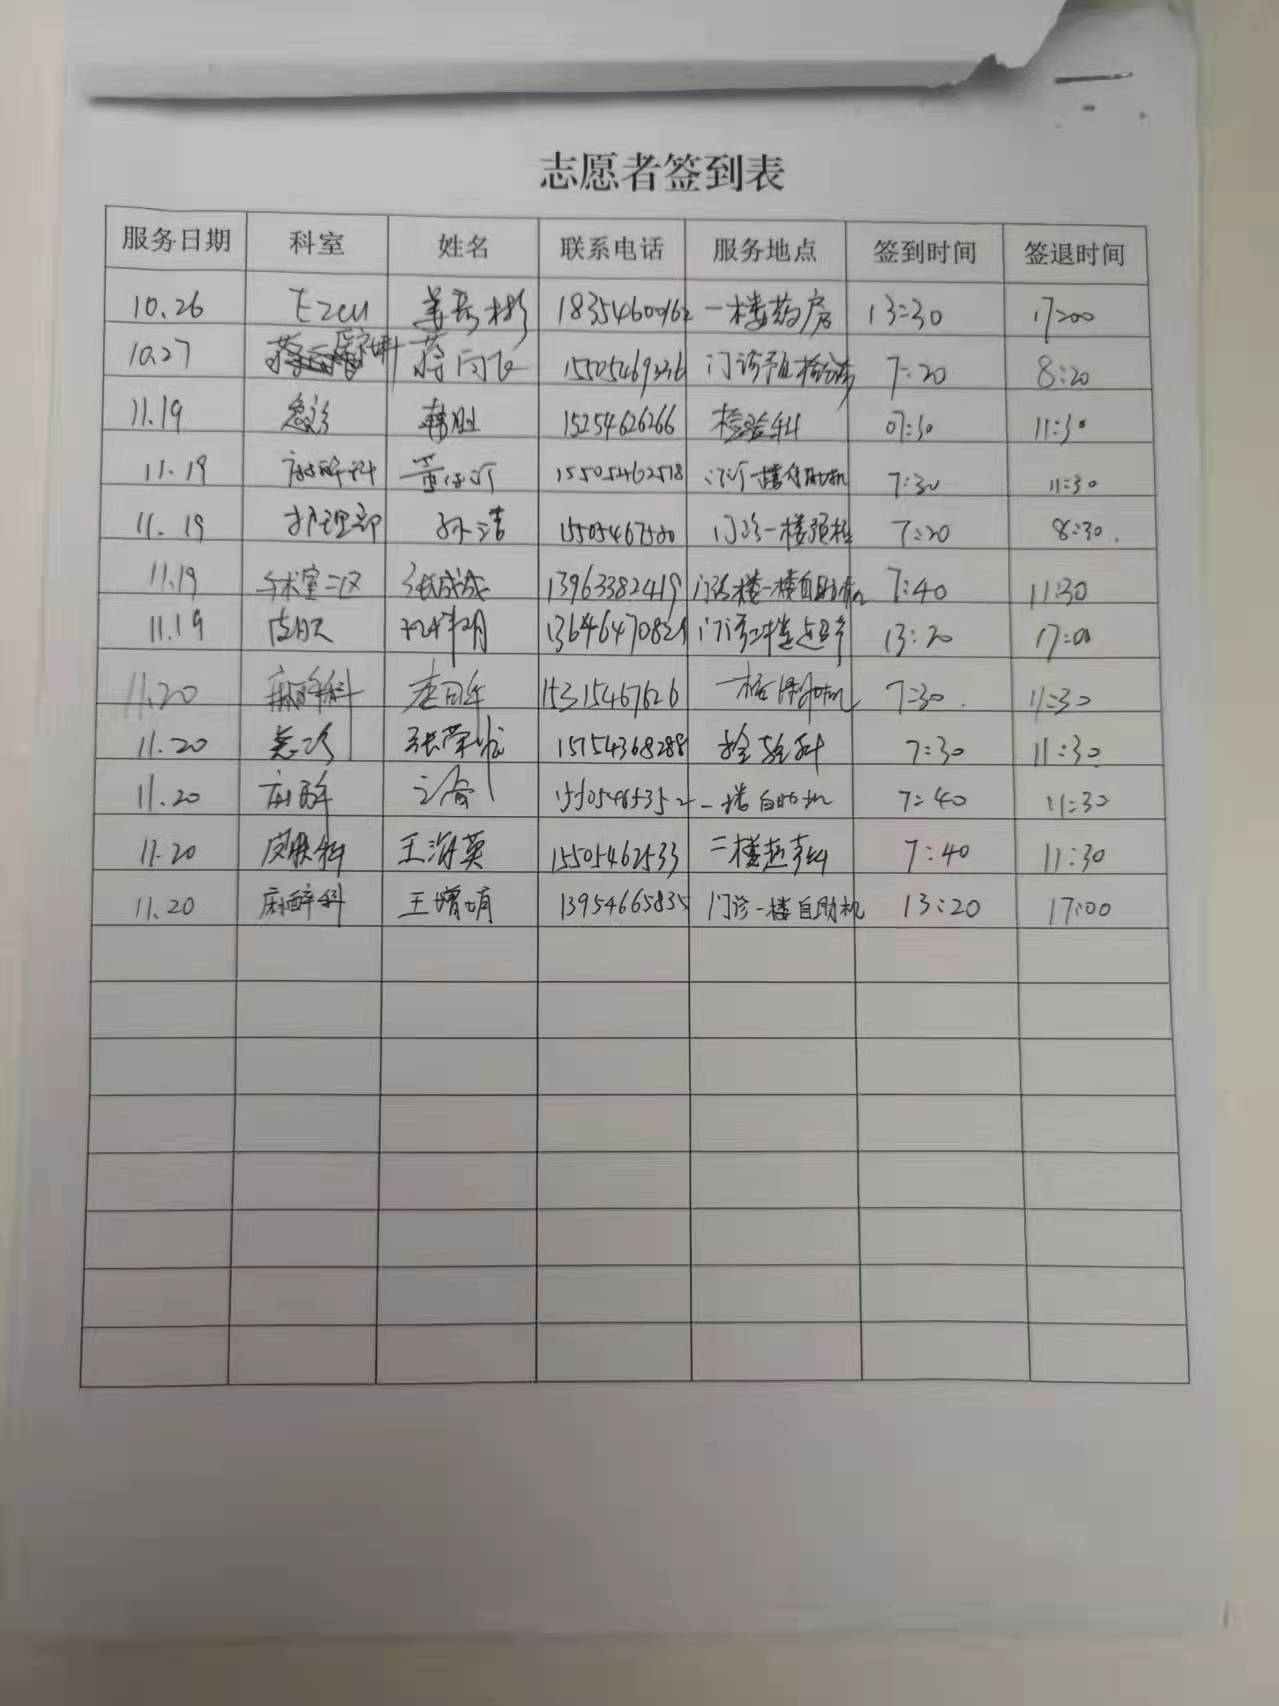 志愿者签到表
服务日期 科室 姓名 联系电话 服务地点 签到时间 签退时间
10.26 EICU 18354600162 一楼药房 13:30 17:00
10.27 蒋 15505469236 门诊预检分诊 7:20 8:20
11.19 急诊 韩胜 15254626266 检验科 07:30 11:30
11.19 麻醉科 15505462518 门诊一楼自助机 7:30 11:30
11.19 护理部 孙洁 门诊一楼预检 7:20 8:30
11.19 手术室二区 张成成 13963382419 门诊楼一楼自助机 7:40 11:30
11.19 皮肤 门诊二楼超声 13:20 17:00
11.20 麻醉科 15315467626 7:30 11:30
11.20 急诊 15754368288 检验科 7:30 11:30
11.20 麻醉 一楼自助机 7:40 11:30
11.20 皮肤科 王海英 15505462533 二楼超声科 7:40 11:30
11.20 麻醉科 王增娟 13954665835 门诊一楼自助机 13:20 17:00